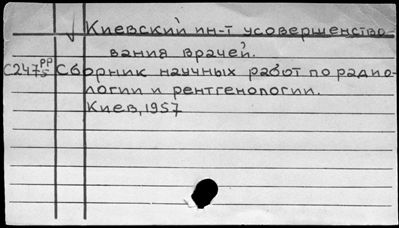 Киевский ин-т усовершенство-
вания врачей.
Сборник научных работ по радио-
логии и рентгенологии.
Киев, 1957